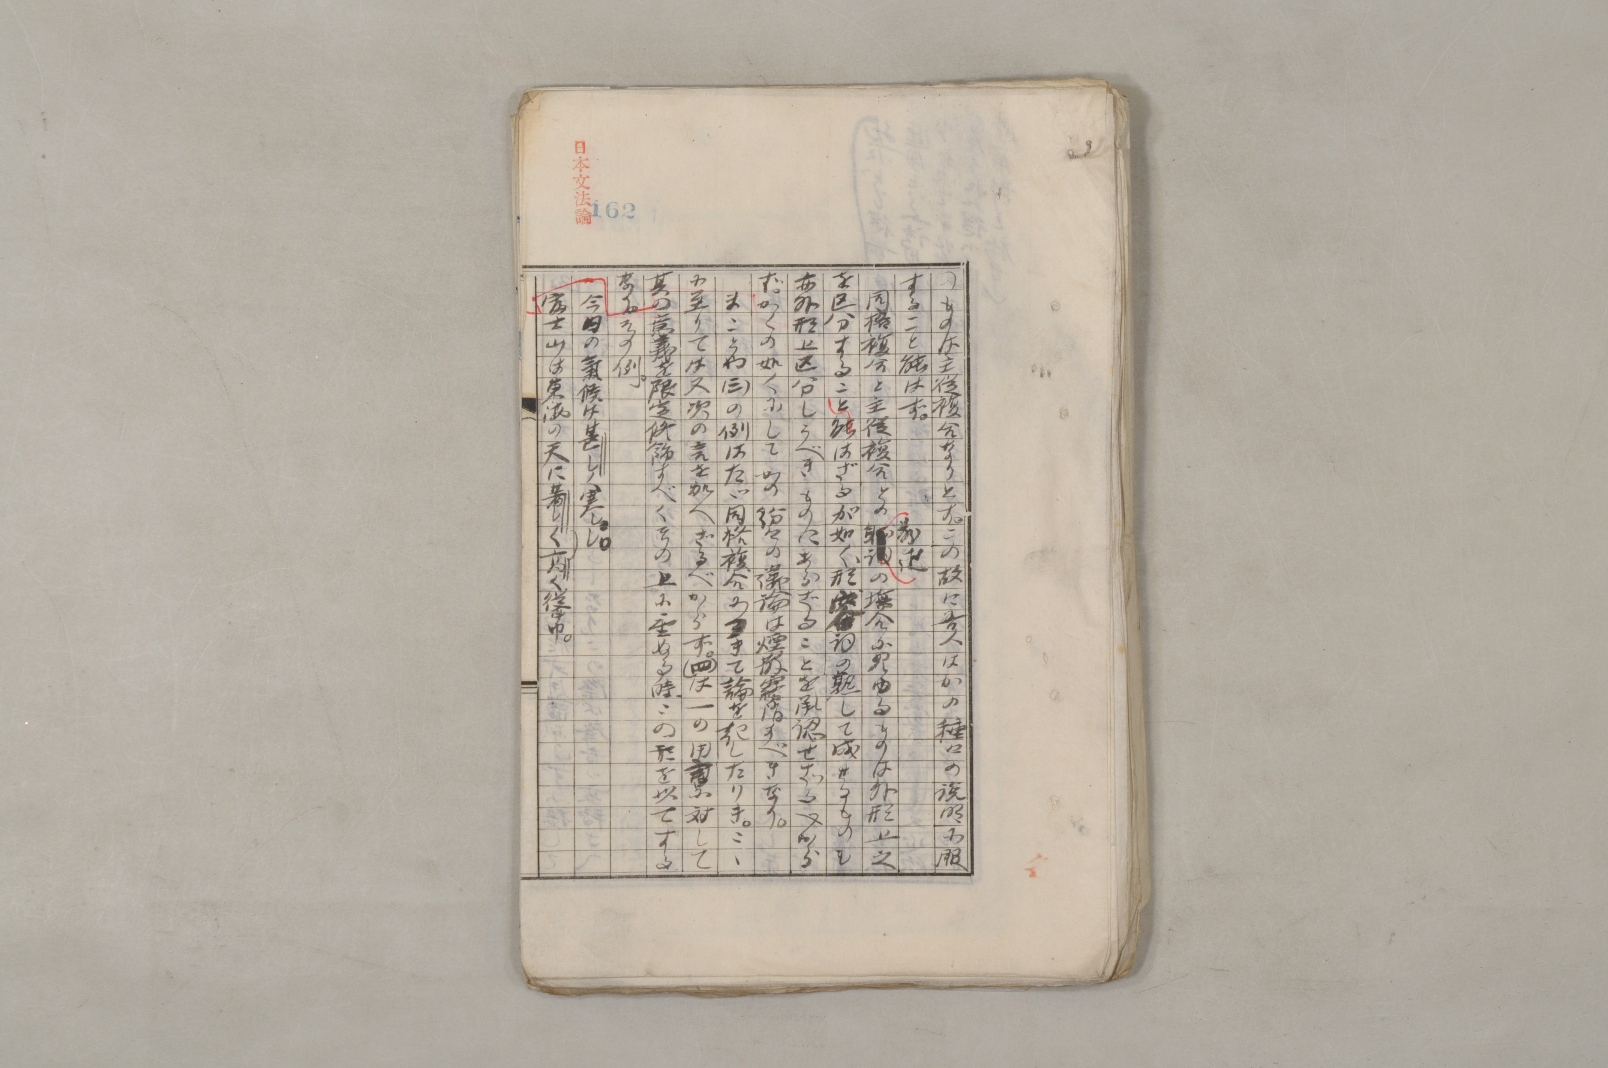 日本文法論
162
のものは主從複合なりとす。この故に吾人はかの種々の説明に服
すること能はず。
同格複合と主從複合との 複合に於けるものは外形上之
を区分すること能はざるが如く形 詞の熟して成せるものも
亦外形上区分しうべきものにあらざることを承認せざるべから
ず。かくの如くにしてかの紛々の議論は煙散霧消すべきなり。
まことや(三)の例はたゞ同格複合につきて論を起したりき。こゝ
に至りては又次の言を加へざるべからず。(四)は一の用言に対して
其の意義を限定修飾すべくその上に重ぬる時この形を以てする
ものその例。
今日の氣候は甚しく寒し。
富士山は東海の天に著しく高く聳ゆ。